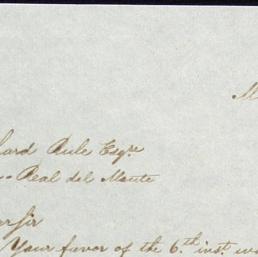 M
hard Rule Esqre
Real del Monte
ar Sir
Your favor of the 6th inst. wa